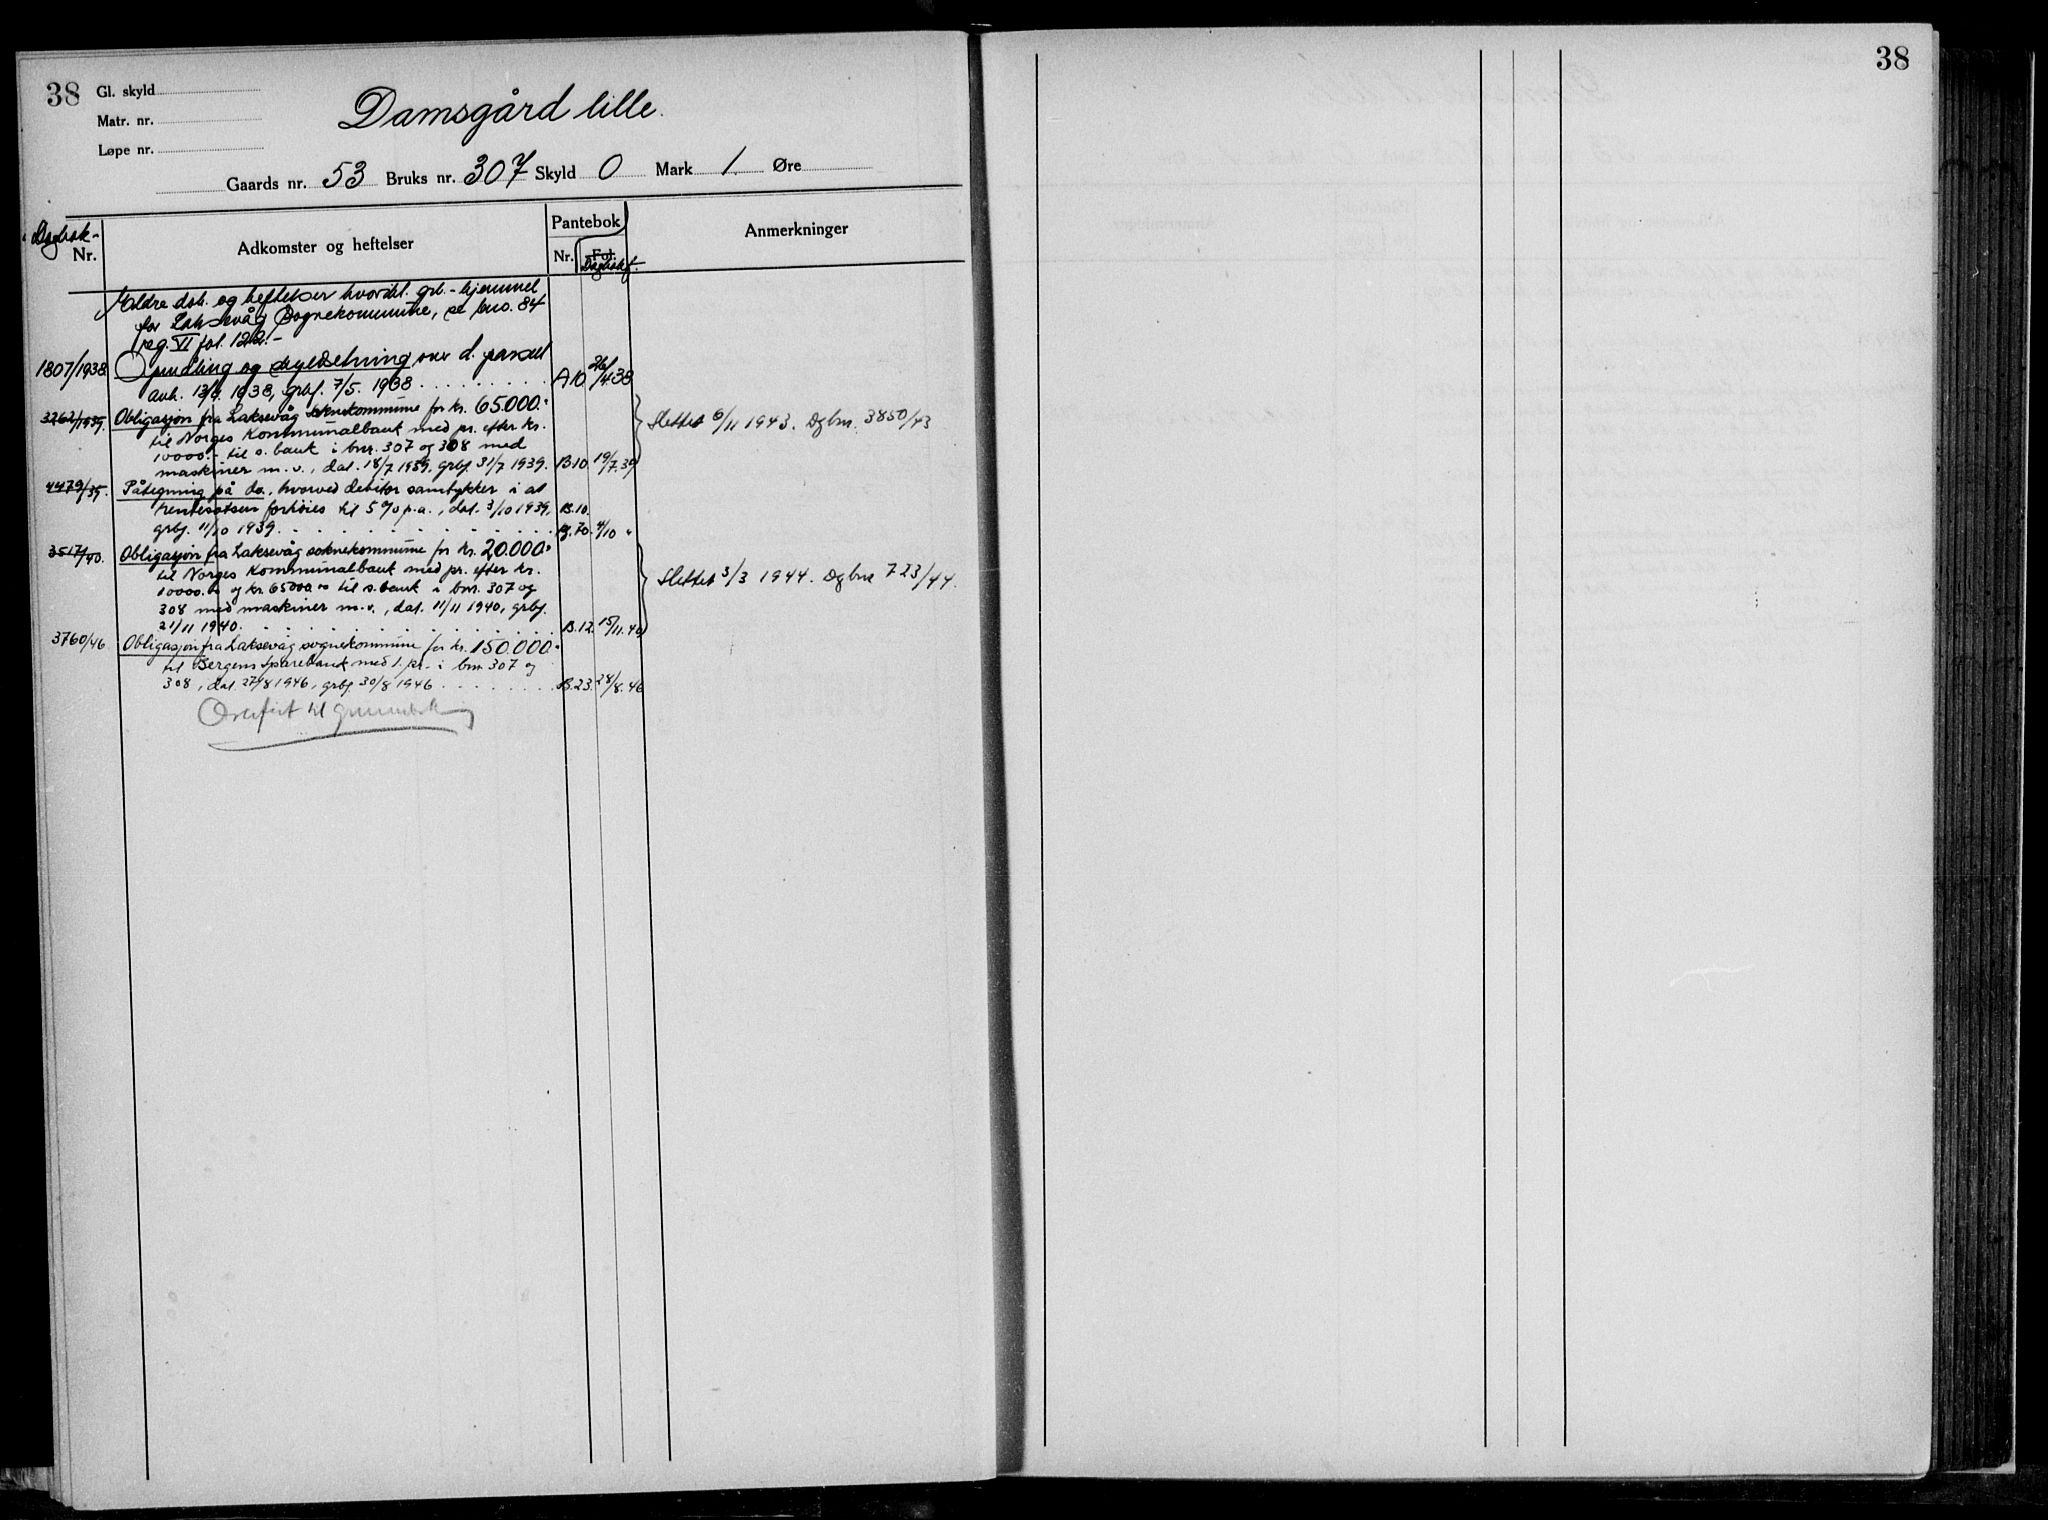 38
Gl. skyld
Matr. nr.
Løpe nr.
Damsgård lille.
Gaards nr. 53 Bruks nr. 307 Skyld 0 Mark 1. Øre
Dagbok-
Nr.
Adkomster og heftelser
Pantebok
Nr. Fol.
Dagbokf.
Anmerkninger
Eldre dok. og heftelser hvoribl. grb.-hjemmel
for Laksevåg Sognekommune, se bno. 84
reg. VI fol. 122.-
1807/1938 Opmåling og skyldsetning over d. parsell
avh. 13/4 1938, grbf. 7/5. 1938 . . . . . . . . . A 10 26/4 38
3262/1939. Obligasjon fra Laksevåg soknekommune for kr. 65.000.-
til Norges Kommunalbank med pr. efter kr.
10000.- til s. bank i bnr. 307 og 308 med
maskiner m.v., dat. 18/7 1939, grbf. 31/7 1939. B.10. 19/7.39
Slettet 6/11 1943. Dgbnr. 3850/43
4479/39. Påtegning på do., hvorved debitor samtykker i at
rentesatsen forhöies til 5 % p.a., dat. 3/10 1939, B.10.
grbf. 11/10 1939. . . . . . . . . . . 70. 4/10 "
3517/40. Obligasjon fra Laksevåg soknekommune for kr. 20.000.-
til Norges Kommunalbank med pr. efter kr.
10000.- og kr. 65000.- til s. bank i bnr. 307 og
308 med maskiner m.v., dat. 11/11 1940, grbf.
21/11 1940. . . . . . . . . . . B.12. 15/11.40
Slettet 3/3 1944. Dgbnr 723/44.
3760/46 Obligasjon fra Laksevåg sognekommune for kr. 150.000.-
til Bergens Sparebank med 1. pr. i bnr. 307 og
308, dat. 27/8 1946, grbf 30/8 1946 . . . . . . . . B.23. 28/8.46
Overført til grunnbok
38